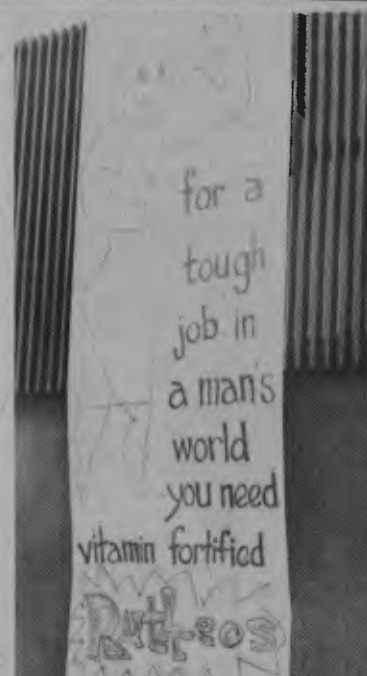 for a
tough
job in
a man's
world
you need
vitamin fortified
Ruth-eos